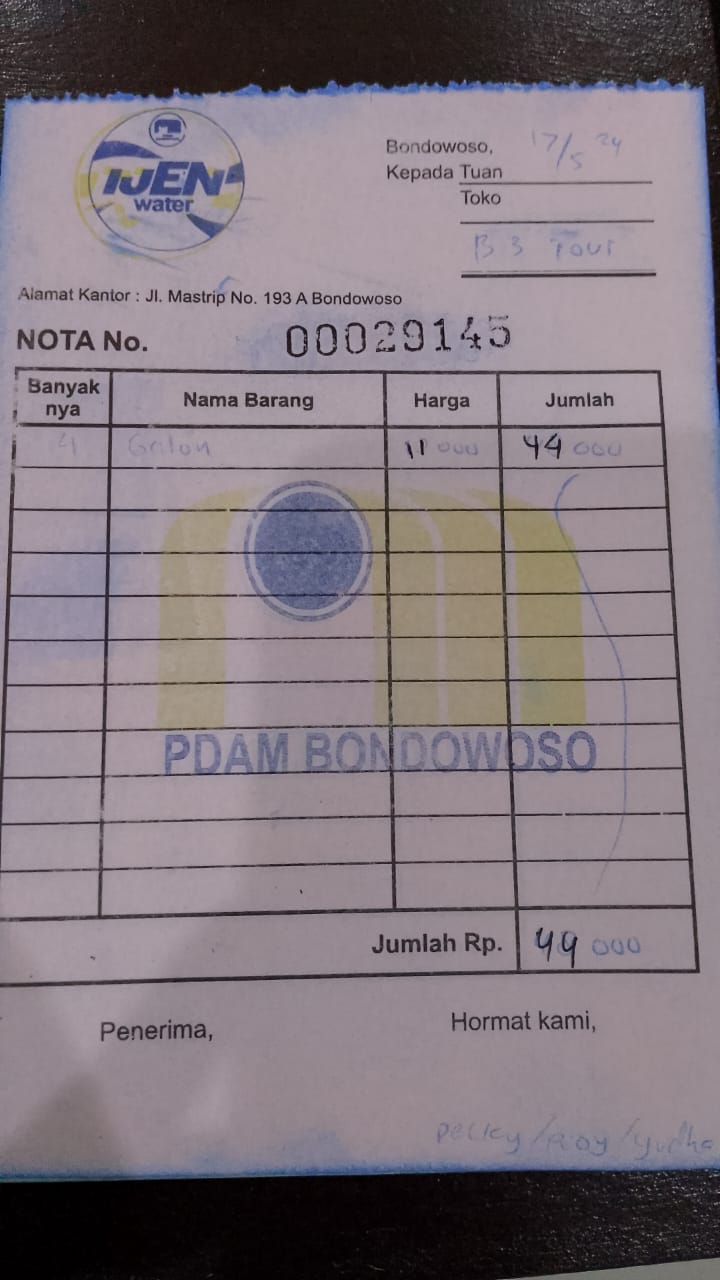 IJEN
water
Bondowoso, 17/5 24
Kepada Tuan
Toko
B 3 Tour
Alamat Kantor : Jl. Mastrip No. 193 A Bondowoso
NOTA No. 00029145
Banyak nya Nama Barang Harga Jumlah
4 Galon 11 000 44 000
PDAM BONDOWOSO
Jumlah Rp. 44 000
Penerima, Hormat kami,
pecky/Roy/yudha